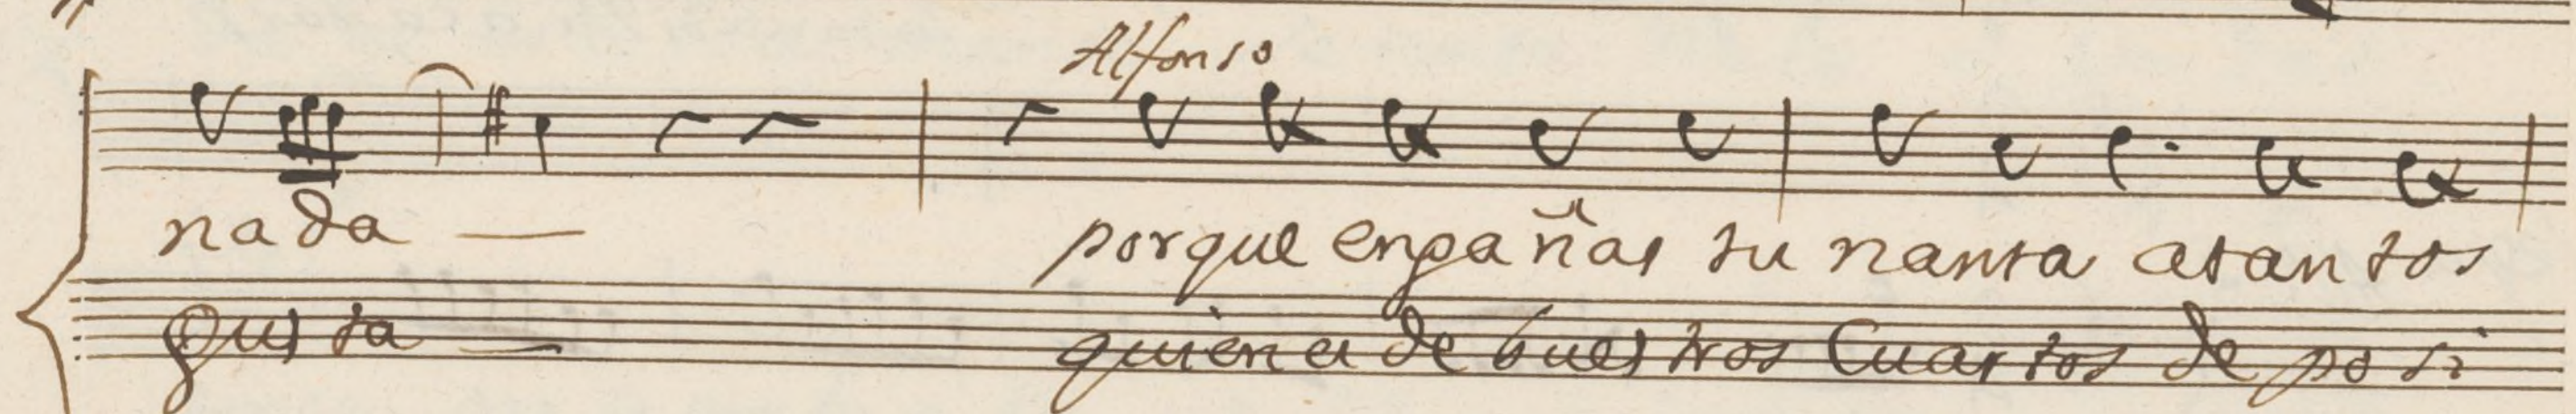 Alfonso
nada — porque engañas tu nanta atantos
gusta — quien es de buestros Cuartos de posi